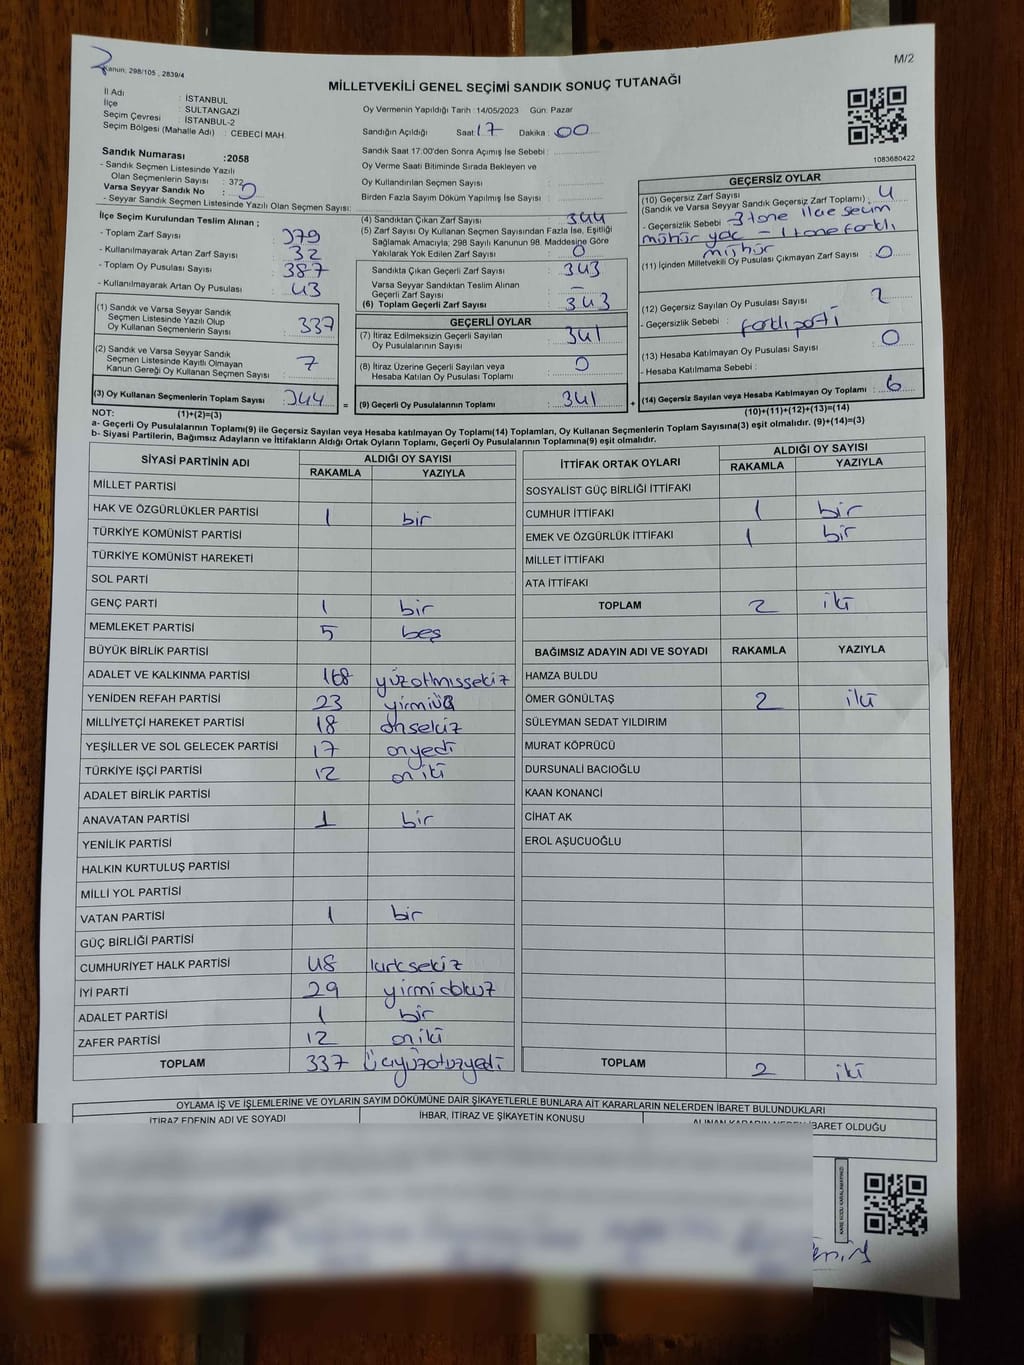 M/2
Kanun: 298/105 , 2839/4
MİLLETVEKİLİ GENEL SEÇİMİ SANDIK SONUÇ TUTANAĞI
İl Adı : İSTANBUL
İlçe : SULTANGAZİ
Seçim Çevresi : İSTANBUL-2
Seçim Bölgesi (Mahalle Adı) : CEBECİ MAH.
Sandık Numarası :2058
- Sandık Seçmen Listesinde Yazılı
Olan Seçmenlerin Sayısı : 372
Varsa Seyyar Sandık No : 0
- Seyyar Sandık Seçmen Listesinde Yazılı Olan Seçmen Sayısı:
Oy Vermenin Yapıldığı Tarih :14/05/2023 Gün: Pazar
Sandığın Açıldığı Saat: 17 Dakika: 00
Sandık Saat 17:00'den Sonra Açımış İse Sebebi :
Oy Verme Saati Bitiminde Sırada Bekleyen ve
Oy Kullandırılan Seçmen Sayısı :
Birden Fazla Sayım Döküm Yapılmış İse Sayısı :
1083680422
İlçe Seçim Kurulundan Teslim Alınan ;
- Toplam Zarf Sayısı : 379
- Kullanılmayarak Artan Zarf Sayısı : 32
- Toplam Oy Pusulası Sayısı : 387
- Kullanılmayarak Artan Oy Pusulası : 43
(1) Sandık ve Varsa Seyyar Sandık
Seçmen Listesinde Yazılı Olup
Oy Kullanan Seçmenlerin Sayısı : 337
(2) Sandık ve Varsa Seyyar Sandık
Seçmen Listesinde Kayıtlı Olmayan
Kanun Gereği Oy Kullanan Seçmen Sayısı : 7
(3) Oy Kullanan Seçmenlerin Toplam Sayısı : 344 =
(4) Sandıktan Çıkan Zarf Sayısı : 344
(5) Zarf Sayısı Oy Kullanan Seçmen Sayısından Fazla İse, Eşitliği
Sağlamak Amacıyla; 298 Sayılı Kanunun 98. Maddesine Göre
Yakılarak Yok Edilen Zarf Sayısı : 0
Sandıkta Çıkan Geçerli Zarf Sayısı : 343
Varsa Seyyar Sandıktan Teslim Alınan
Geçerli Zarf Sayısı : -
(6) Toplam Geçerli Zarf Sayısı : 343
GEÇERLİ OYLAR
(7) İtiraz Edilmeksizin Geçerli Sayılan
Oy Pusulalarının Sayısı : 341
(8) İtiraz Üzerine Geçerli Sayılan veya
Hesaba Katılan Oy Pusulası Toplamı : 0
(9) Geçerli Oy Pusulalarının Toplamı : 341 +
GEÇERSİZ OYLAR
(10) Geçersiz Zarf Sayısı
(Sandık ve Varsa Seyyar Sandık Geçersiz Zarf Toplamı) : 4
- Geçersizlik Sebebi : 3 tane ilçe seçim
mühür yok - 1 tane farklı
mühür
(11) İçinden Milletvekili Oy Pusulası Çıkmayan Zarf Sayısı : 0
(12) Geçersiz Sayılan Oy Pusulası Sayısı : 2
- Geçersizlik Sebebi : farklı parti
(13) Hesaba Katılmayan Oy Pusulası Sayısı : 0
- Hesaba Katılmama Sebebi :
(14) Geçersiz Sayılan veya Hesaba Katılmayan Oy Toplamı : 6
(10)+(11)+(12)+(13)=(14)
NOT: (1)+(2)=(3)
a- Geçerli Oy Pusulalarının Toplamı(9) ile Geçersiz Sayılan veya Hesaba katılmayan Oy Toplamı(14) Toplamları, Oy Kullanan Seçmenlerin Toplam Sayısına(3) eşit olmalıdır. (9)+(14)=(3)
b- Siyasi Partilerin, Bağımsız Adayların ve İttifakların Aldığı Ortak Oyların Toplamı, Geçerli Oy Pusulalarının Toplamına(9) eşit olmalıdır.
SİYASİ PARTİNİN ADI ALDIĞI OY SAYISI
RAKAMLA YAZIYLA
MİLLET PARTİSİ
HAK VE ÖZGÜRLÜKLER PARTİSİ 1 bir
TÜRKİYE KOMÜNİST PARTİSİ
TÜRKİYE KOMÜNİST HAREKETİ
SOL PARTİ
GENÇ PARTİ 1 bir
MEMLEKET PARTİSİ 5 beş
BÜYÜK BİRLİK PARTİSİ
ADALET VE KALKINMA PARTİSİ 168 yüzatmışsekiz
YENİDEN REFAH PARTİSİ 23 yirmiüç
MİLLİYETÇİ HAREKET PARTİSİ 18 onsekiz
YEŞİLLER VE SOL GELECEK PARTİSİ 17 onyedi
TÜRKİYE İŞÇİ PARTİSİ 12 oniki
ADALET BİRLİK PARTİSİ
ANAVATAN PARTİSİ 1 bir
YENİLİK PARTİSİ
HALKIN KURTULUŞ PARTİSİ
MİLLİ YOL PARTİSİ
VATAN PARTİSİ 1 bir
GÜÇ BİRLİĞİ PARTİSİ
CUMHURİYET HALK PARTİSİ 48 kırksekiz
İYİ PARTİ 29 yirmidokuz
ADALET PARTİSİ 1 bir
ZAFER PARTİSİ 12 oniki
TOPLAM 337 Üçyüzotuzyedi
İTTİFAK ORTAK OYLARI ALDIĞI OY SAYISI
RAKAMLA YAZIYLA
SOSYALİST GÜÇ BİRLİĞİ İTTİFAKI
CUMHUR İTTİFAKI 1 bir
EMEK VE ÖZGÜRLÜK İTTİFAKI 1 bir
MİLLET İTTİFAKI
ATA İTTİFAKI
TOPLAM 2 iki
BAĞIMSIZ ADAYIN ADI VE SOYADI RAKAMLA YAZIYLA
HAMZA BULDU
ÖMER GÖNÜLTAŞ 2 iki
SÜLEYMAN SEDAT YILDIRIM
MURAT KÖPRÜCÜ
DURSUNALİ BACIOĞLU
KAAN KONANCİ
CİHAT AK
EROL AŞUCUOĞLU
TOPLAM 2 iki
OYLAMA İŞ VE İŞLEMLERİNE VE OYLARIN SAYIM DÖKÜMÜNE DAİR ŞİKAYETLERLE BUNLARA AİT KARARLARIN NELERDEN İBARET BULUNDUKLARI
İTİRAZ EDENİN ADI VE SOYADI İHBAR, İTİRAZ VE ŞİKAYETİN KONUSU ALINAN KARARIN NEDEN İBARET OLDUĞU
KARE KODU KARALAMAYINIZ!